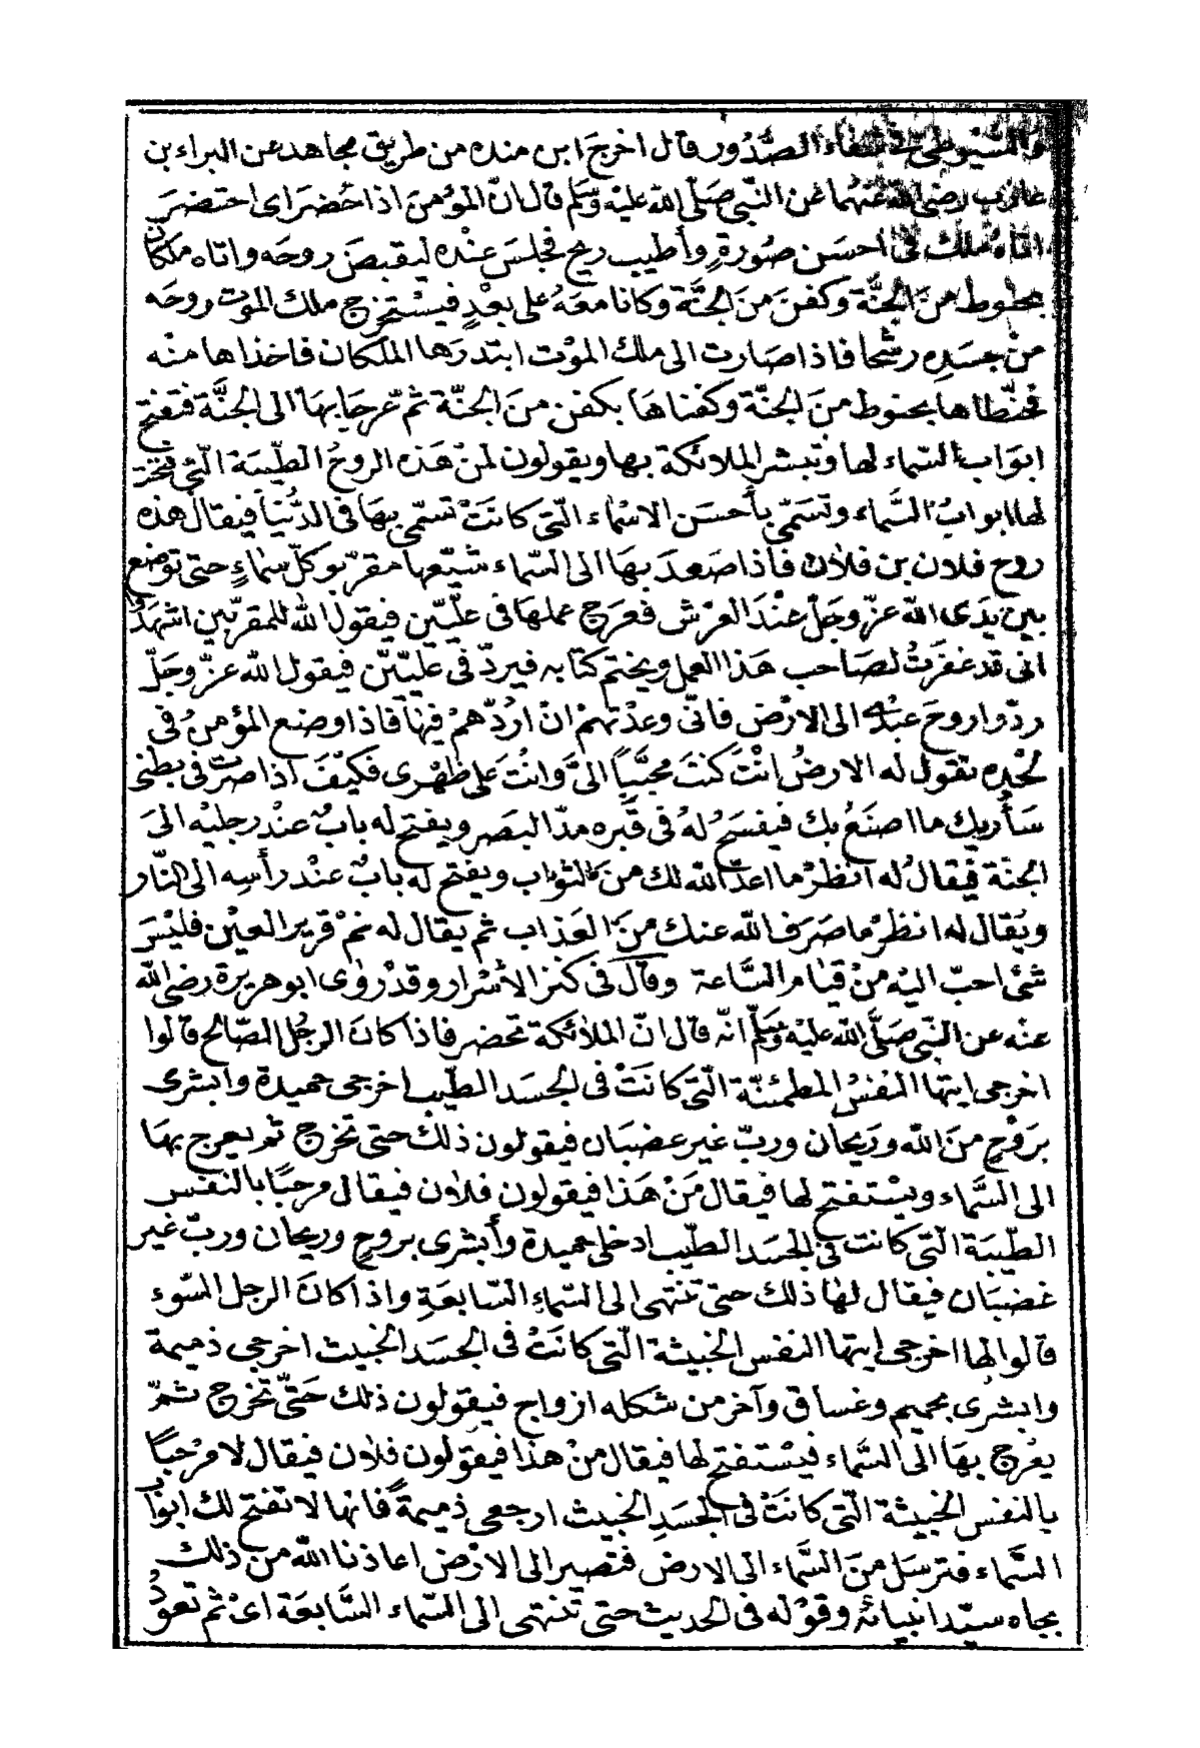 والسيوطى فى شفاء الصُّدُور قال اخرجَ ابن منده من طريق مجاهد عن البراء بن
عازب رضى الله عنهُما عن النّبى صَلّى الله عليه وسَلّم قال انّ المؤمنَ اذا حُضرَ اى احتضرَ
اتاهُ ملك فى احسَن صُورةٍ وأطيب ريح فجلسَ عنْده ليقبضَ روحَه واتاه ملكان
بحنوط منَ الجنَّة وكفنَ منَ الجنَّة وكانا معَهُ على بعْدٍ فيسْتخرج ملك الموت روحَه
منْ جسَدِه رشحا فاذا صَارت الى ملك الموْت ابتدرَها الملكان فاخذاها منْه
فحنّطاها بحنوط منَ الجنّة وكفناهَا بكفن منَ الجنّة ثمّ عرجَا بهَا الى الجنَّة فتفتح
ابوَاب السّماء لها وتبشر الملائكة بها ويقولون لمنْ هَذه الروحُ الطّيبَة الّتى فتحت
لها ابوابُ السَّماء وتسَمّى بأحسَن الاسْماء الّتى كانَتْ تسَمّى بهَا فى الدُّنيَا فيقال هَذه
روح فلان بن فلاَن فاذا صَعدَ بهَا الى السّماء شيّعها مقرّبو كلّ سماءٍ حتى توضع
بين يَدَى الله عزّ وجَلّ عنْدَ العرْش فعرج عملهَا فى علّيّين فيقول الله للمقربّين اشهَدُوا
انى قد غفَرتُ لصَاحب هَذا العمل ويختم كتابه فيردّ فى عليّيّن فيقول الله عزّ وجَلّ
ردّوا روحَ عبْدى الى الارْض فانّى وعدْتهمْ انْ اردّهمْ فيهَا فاذا وضع المؤمنُ فى
لحْدِه تقول له الارضُ انْتَ كنتَ محبَّباً الىَّ وانْتَ على ظهْرى فكيْفَ اذا صرت فى بطنى
سَأريك ما اصنَعُ بك فيفسَحُ لهُ فى قبْره مدّ البَصَر ويفتح له بابٌ عنْد رجليْه الىَ
الجنّة فيقالُ له انظرْ ما اعدّ الله لك منَ الثواب ويفتح له بابٌ عنْد رأسِه الى النّار
ويُقال له انظرْ ما صَرَف الله عنك منَ العَذاب ثم يقال له نمْ قرير العيْن فليْسَ
شئ احبّ اليْه منْ قيَام السَّاعة وقال فى كنز الاسْرار وقدْ روٰى ابو هريرة رضى الله
عنْه عن النَّبى صَلَّى الله عليْه وسَلّم انّه قال انّ الملائكة تحضر فاذا كانَ الرجُل الصّالح قالوا
اخرجى ايتها النفسُ المطمئنّة الّتى كانَتْ فى الجسَد الطّيب اخرجى حميدة وابشرى
برَوْحٍ منَ الله ورَيحان وربّ غير غضبَان فيقولون ذلك حتى تخرج ثم يعرج بهَا
الى السَّماء ويسْتفتح لها فيقال مَنْ هَذا فيقولون فلاَن فيقال مرحبًا بالنفس
الطّيبَة الّتى كانت فى الجسَد الطّيب ادخلى حميدة وأبشرى بروحٍ وريحان وربّ غير
غضبَان فيقال لهَا ذلك حتى تنْتهى الى السّماءِ السّابعَةِ واذا كانَ الرجل السّوء
قالوا لها اخرجى ايتها النفس الخبيثة الّتى كانَتْ فى الجسَد الخبيث اخرجى ذميمة
وابشرى بحميم وغساق وآخر من شكله ازواج فيقولون ذلك حَتّى تخرج ثمّ
يعْرج بهَا الى السَّماء فيسْتفتح لها فيقال منْ هذا فيقولون فلاَن فيقال لا مرْحباً
بالنفس الخبيثة الّتى كانَتْ فى الجسَدِ الخبيث ارجعى ذميمةً فانها لا تفتح لك ابوابُ
السَّماء فترسَل منَ السَّماء الى الارض فتصير الى الارْض اعاذنا الله من ذلك
بجاه سيّد انبيائه وقوْله فى الحديث حتى تنْتهى الى السّماء السَّابعَة اىْ ثم تعودُ